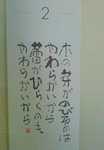 2
木の芽がのびるのは
やわらかいから
蕾がひらくのも、
やわらかいから